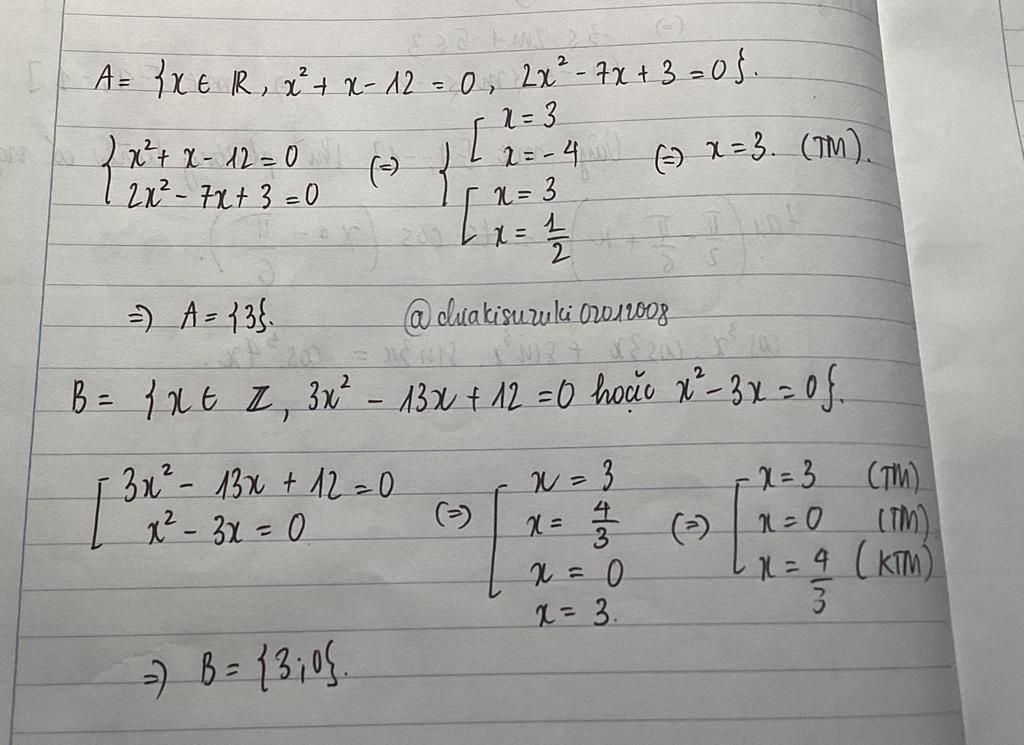 A = {x ∈ ℝ, x² + x - 12 = 0, 2x² - 7x + 3 = 0}.
{ x² + x - 12 = 0 (=) { [ x = 3 (=) x = 3. (TM).
2x² - 7x + 3 = 0 x = -4
[ x = 3
x = 1/2
=) A = {3}. @chuakisuzuki02012008
B = {x ∈ ℤ, 3x² - 13x + 12 = 0 hoặc x² - 3x = 0}.
[ 3x² - 13x + 12 = 0 (=) [ x = 3 (=) [ x = 3 (TM)
x² - 3x = 0 x = 4/3 x = 0 (TM)
x = 0 x = 4/3 (KTM)
x = 3.
=) B = {3;0}.